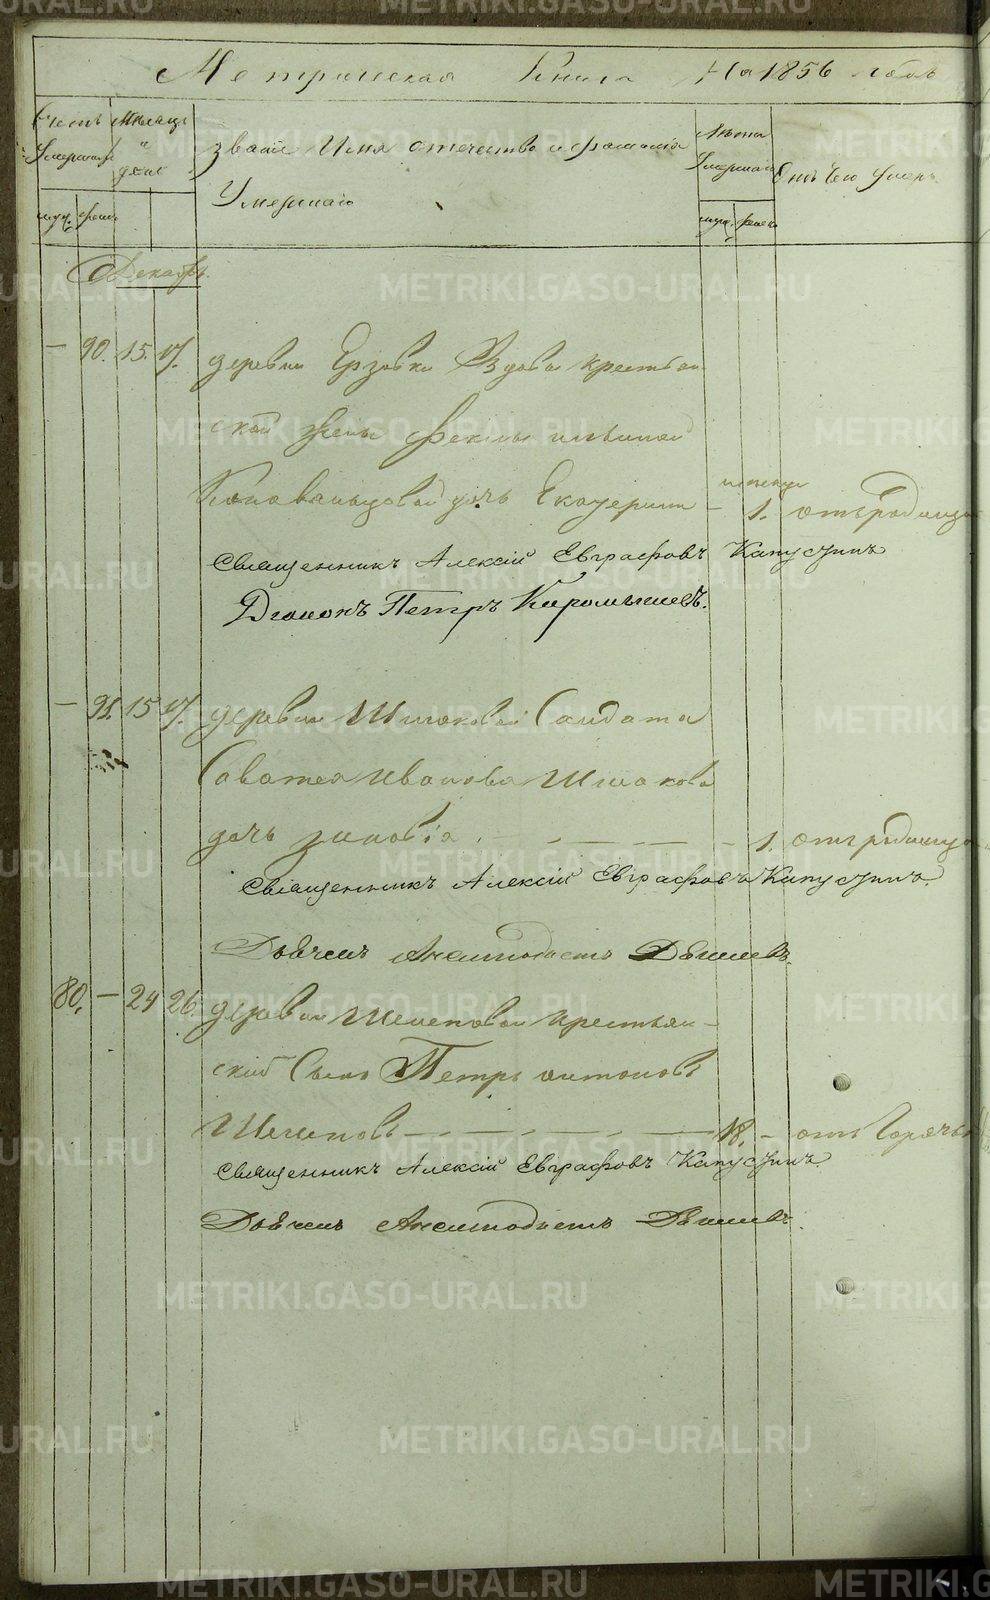 Метрическая Книга На 1856 годъ
Счетъ Умершихъ
Месяцъ и день
Званіе Имя отечество и фамилія Умершаго
Лета Умершаго
Отъ Чего Умеръ
муж. женс.
муж. женск.
Декабрь
— 90. 15. 17. деревни Ерзовки Вдовы крестьян
ской жены Феклы
дочь Екатерина — 1. отъ родимца
Священникъ Алексій Евграфовъ Капустинъ
Діаконъ Петръ
— 91. 15 17. деревни Шишаковой Салдата
Саватея Иванова Шишакова
дочь Зиновія. — — — 1. отъ родимца
Священникъ Алексій Евграфовъ Капустинъ.
80. — 24 26. деревни Шелеповой крестьян-
скій Сынъ Петръ Антоновъ
Шелеповъ — — — 18. — отъ Горячки
Священникъ Алексій Евграфовъ Капустинъ.
METRIKI.GASO-URAL.RU